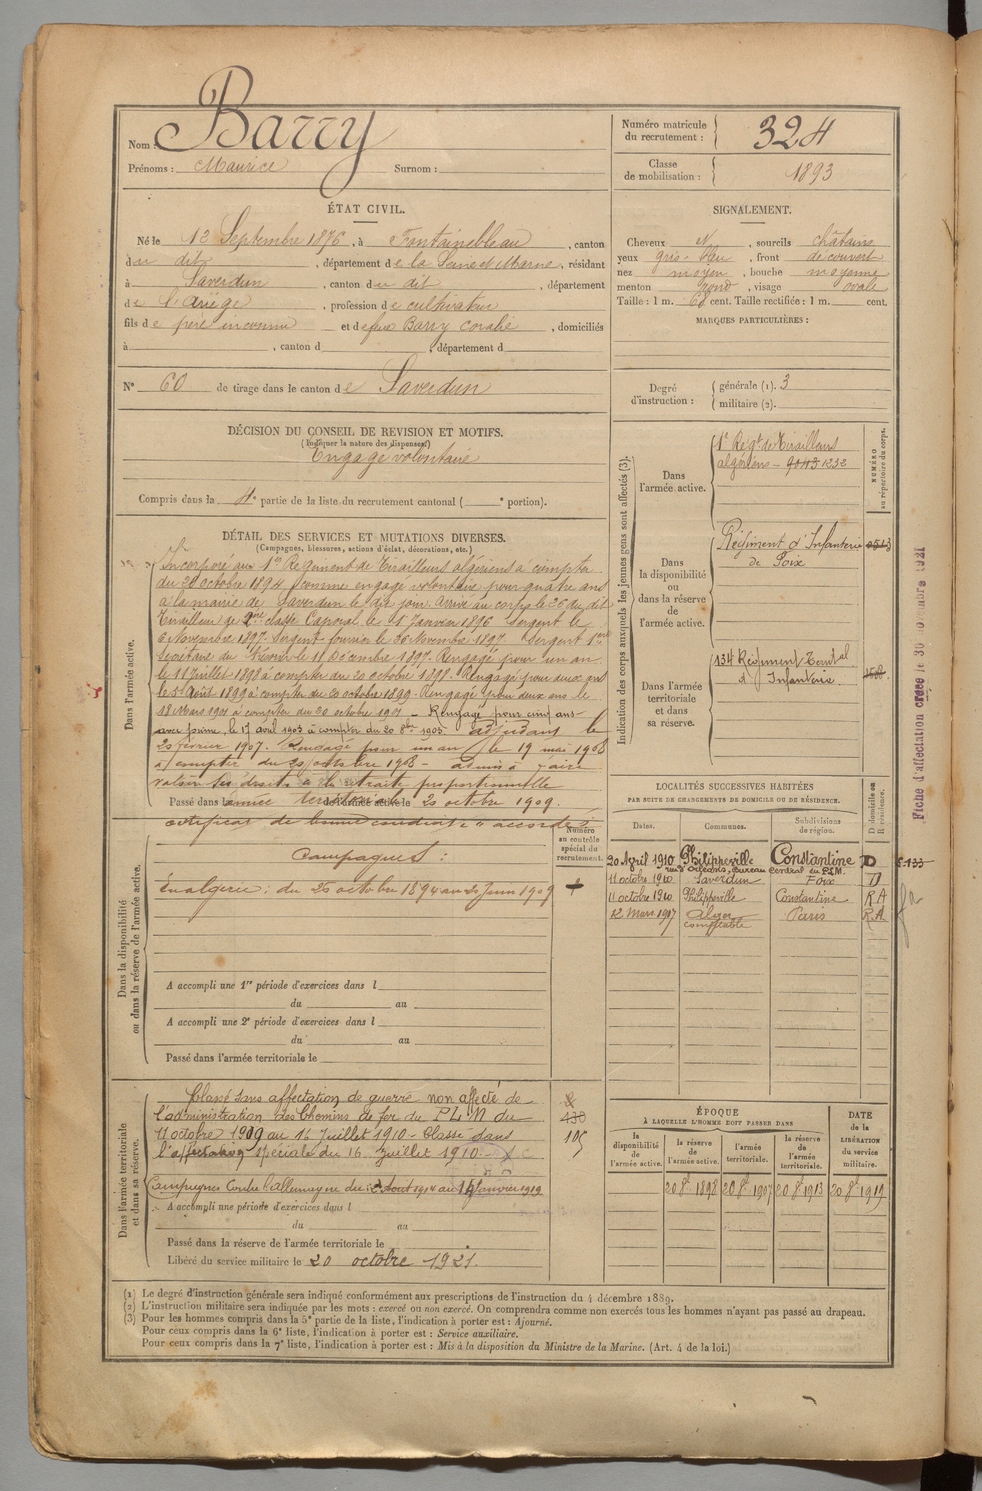 Nom : Barry
Prénoms : Maurice Surnom :
Numéro matricule du recrutement : 324
Classe de mobilisation : 1893
ÉTAT CIVIL.
Né le 12 Septembre 1876, à Fontainebleau, canton
du dit, département de la Seine et Marne, résidant
à Saverdun, canton du dit, département
de l'Ariège, profession de cultivateur
fils de père inconnu et de feue Barry Coralie, domiciliés
à , canton d , département d
N° 60 de tirage dans le canton de Saverdun
SIGNALEMENT.
Cheveux N , sourcils châtains
yeux gris-bleu , front découvert
nez moyen , bouche moyenne
menton rond , visage ovale
Taille : 1 m. 68 cent. Taille rectifiée : 1 m. cent.
MARQUES PARTICULIÈRES :
Degré d'instruction : générale (1). 3
militaire (2).
DÉCISION DU CONSEIL DE REVISION ET MOTIFS.
(Indiquer la nature des dispenses.)
Engagé volontaire
Compris dans la 4e partie de la liste du recrutement cantonal ( e portion).
DÉTAIL DES SERVICES ET MUTATIONS DIVERSES.
(Campagnes, blessures, actions d'éclat, décorations, etc.)
Dans l'armée active.
Incorporé au 1er Régiment de Tirailleurs algériens à compter
du 20 octobre 1894, comme engagé volontaire pour quatre ans
à la mairie de Saverdun le dit jour. Arrivé au corps le 26 du dit
Tirailleur de 2ème classe Caporal le 1 Janvier 1896 Sergent le
6 Novembre 1897. Sergent fourrier le 26 Novembre 1897. Sergent 1er
Secrétaire du Trésorier le 11 Décembre 1897. Rengagé pour un an
le 11 Juillet 1898 à compter du 20 octobre 1898. Rengagé pour deux ans
le 5 Août 1899 à compter du 20 octobre 1899. Rengagé pour deux ans le
18 Mars 1901 à compter du 20 octobre 1901 - Rengagé pour cinq ans
avec prime, le 17 avril 1903 à compter du 20 8bre 1903. Adjudant le
20 février 1907. Rengagé pour un an le 19 mai 1908
à compter du 20 octobre 1908 - admis à faire
valoir ses droits à la retraite proportionnelle
Passé dans l'armée territoriale le 20 octobre 1909.
certificat de bonne conduite "accordé"
Indication des corps auxquels les jeunes gens sont affectés (3).
NUMÉRO au répertoire du corps.
Dans l'armée active.
1er Régt de Tirailleurs
algériens - 9043 1232
Dans la disponibilité ou dans la réserve de l'armée active.
Régiment d'Infanterie
de Foix
Dans l'armée territoriale et dans sa réserve.
134 Régiment Territal
d'Infanterie.
Fiche d'affectation créée le 30 novembre 1921
LOCALITÉS SUCCESSIVES HABITÉES
PAR SUITE DE CHANGEMENTS DE DOMICILE OU DE RÉSIDENCE.
Dates. Communes. Subdivisions de région. D domicile ou R résidence.
20 Avril 1910 Philippeville Constantine D
rue d'Orléans, Bureau central du P.L.M.
11 octobre 1910 Saverdun Foix D
11 octobre 1910 Philippeville Constantine R.A
12 Mars 1917 Alger Paris R.A
comptable
Dans la disponibilité ou dans la réserve de l'armée active.
Numéro au contrôle spécial du recrutement.
Campagnes :
En algérie : du 26 octobre 1894 au 20 Juin 1909
A accompli une 1re période d'exercices dans l
du au
A accompli une 2e période d'exercices dans l
du au
Passé dans l'armée territoriale le
Dans l'armée territoriale et dans sa réserve.
Classé sans affectation de guerre non affecté de
l'administration des Chemins de fer du P L M du
11 octobre 1909 au 16 Juillet 1910 - Classé dans
l'affectation spéciale du 16 Juillet 1910.
130
105
Campagnes Contre l'allemagne du 2 Août 1914 au 14 Janvier 1919
A accompli une période d'exercices dans l
du au
Passé dans la réserve de l'armée territoriale le
Libéré du service militaire le 20 octobre 1921.
ÉPOQUE
À LAQUELLE L'HOMME DOIT PASSER DANS
DATE de la LIBÉRATION du service militaire.
la disponibilité de l'armée active. la réserve de l'armée active. l'armée territoriale. la réserve de l'armée territoriale.
20 8bre 1898 20 8bre 1907 20 8bre 1913 20 8bre 1919
(1) Le degré d'instruction générale sera indiqué conformément aux prescriptions de l'instruction du 4 décembre 1889.
(2) L'instruction militaire sera indiquée par les mots : exercé ou non exercé. On comprendra comme non exercés tous les hommes n'ayant pas passé au drapeau.
(3) Pour les hommes compris dans la 5e partie de la liste, l'indication à porter est : Ajourné.
Pour ceux compris dans la 6e liste, l'indication à porter est : Service auxiliaire.
Pour ceux compris dans la 7e liste, l'indication à porter est : Mis à la disposition du Ministre de la Marine. (Art. 4 de la loi.)